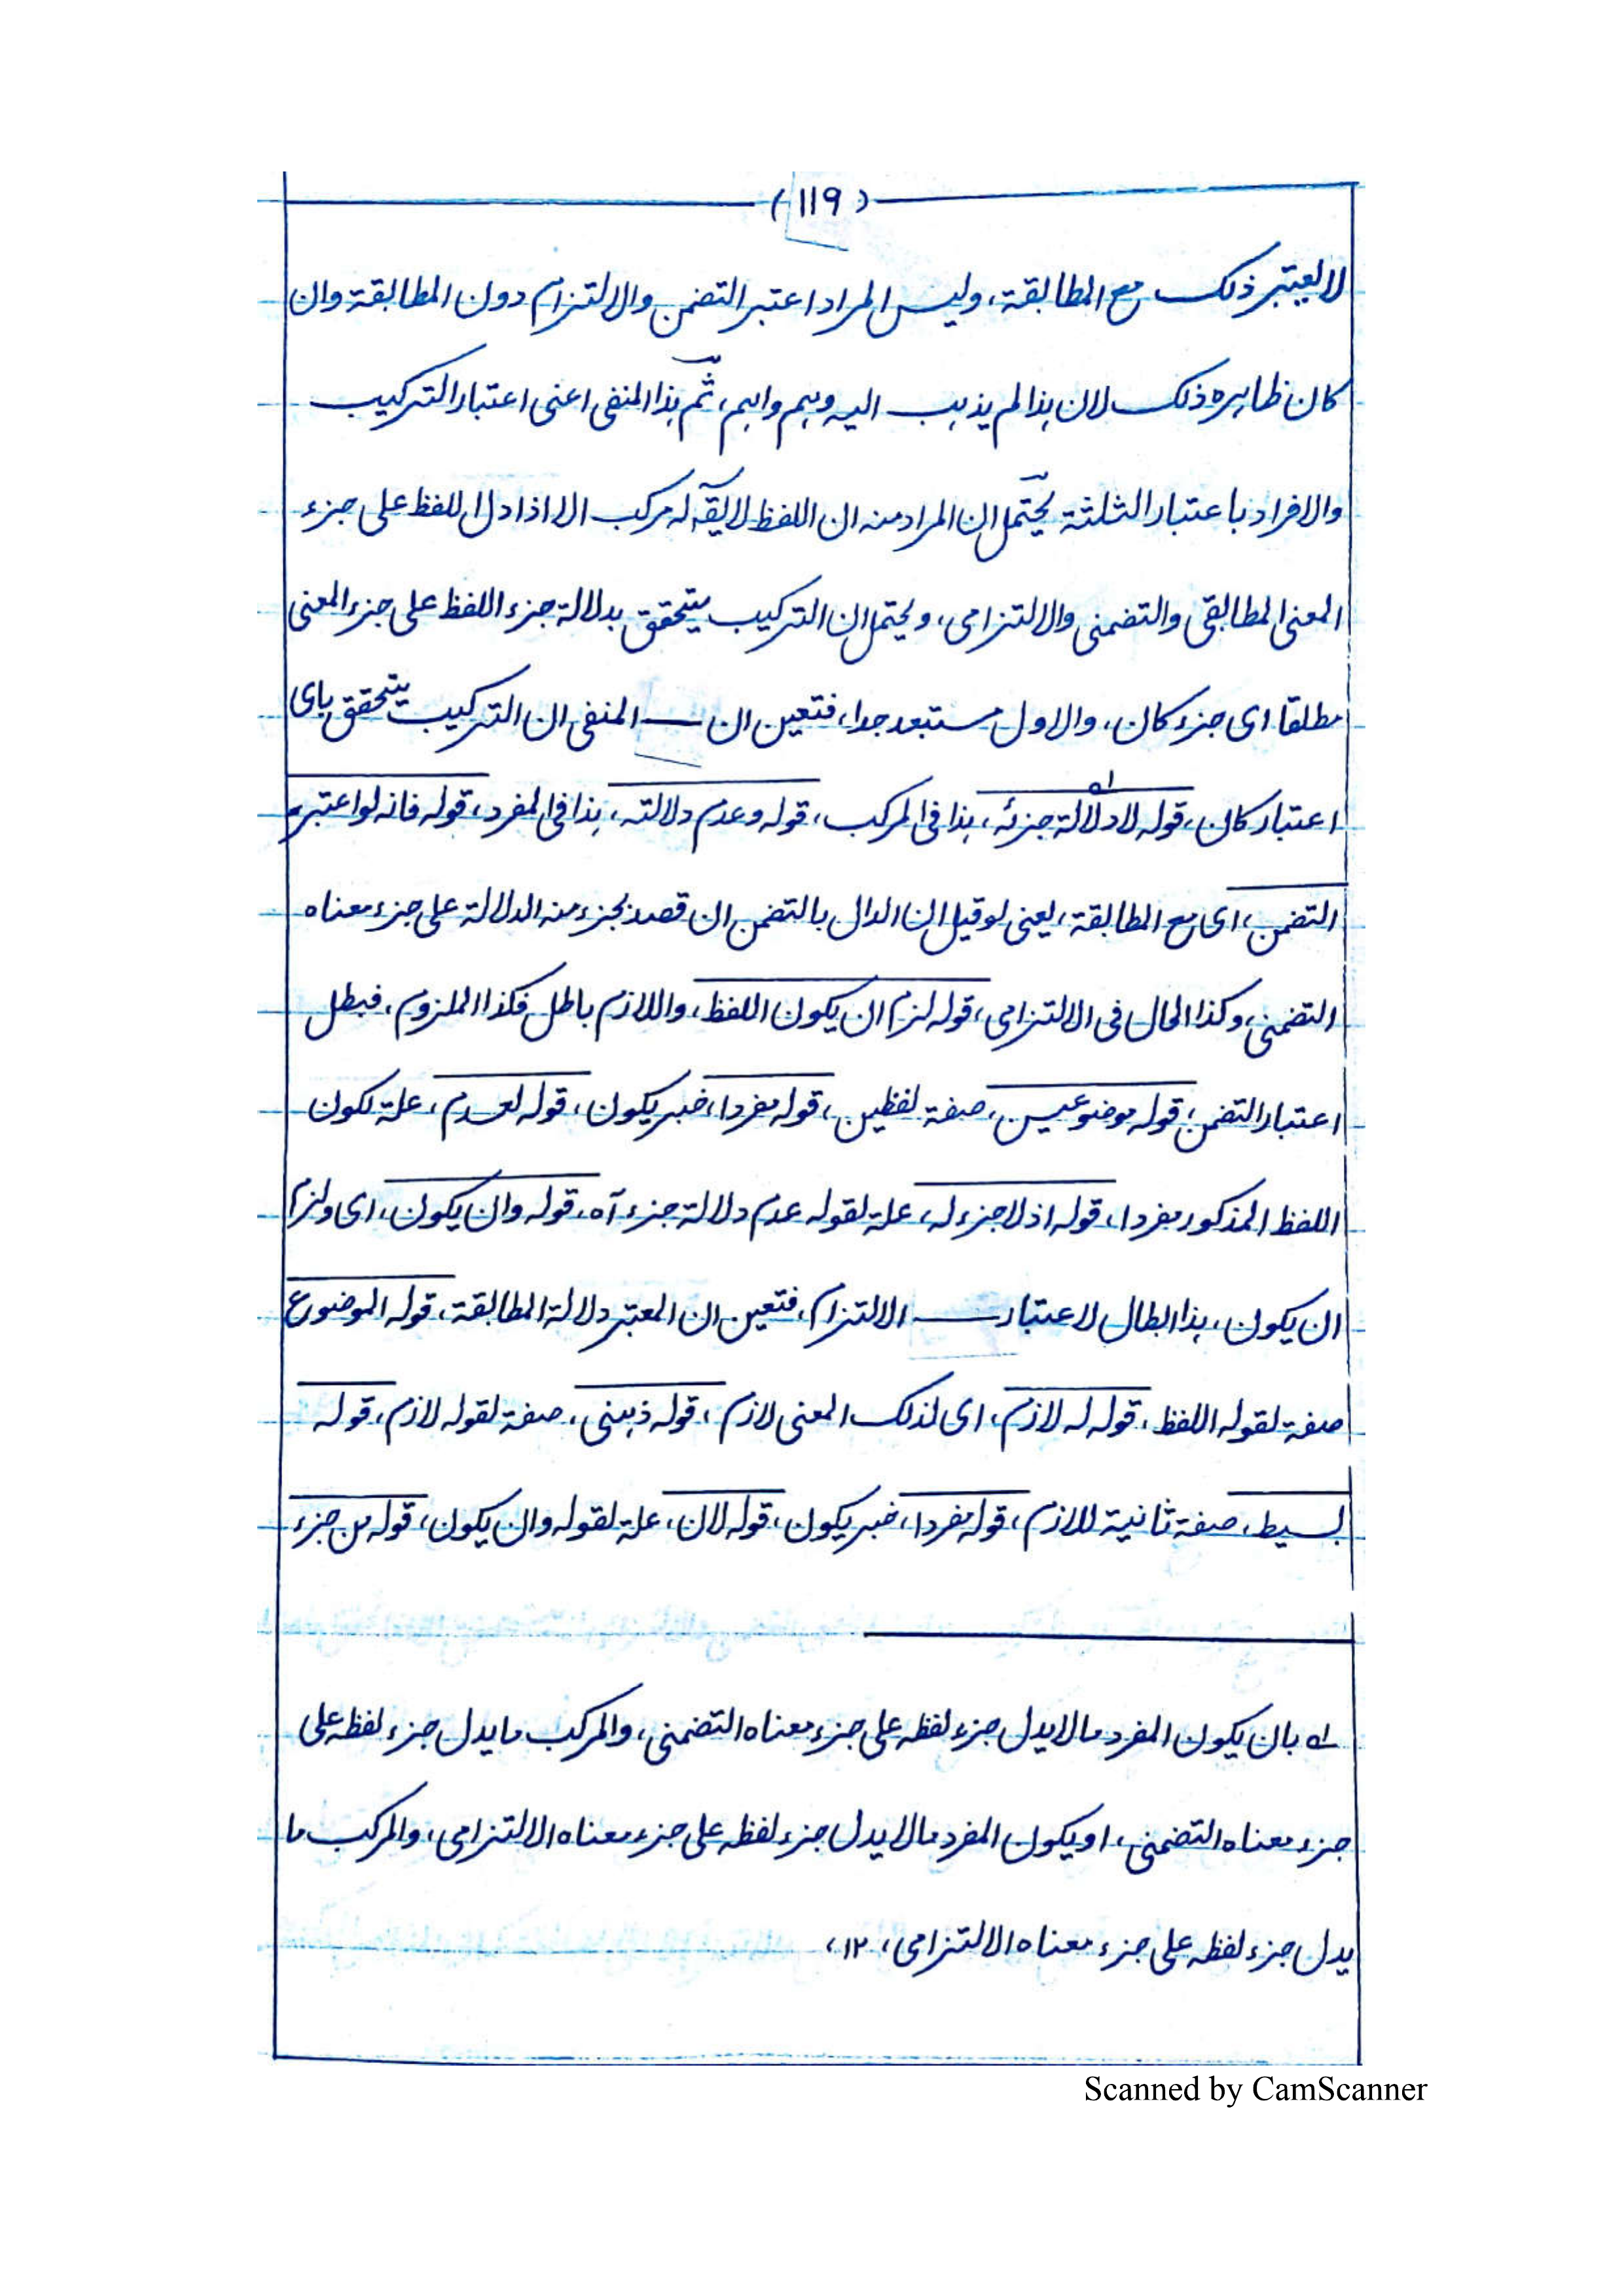 (١١٩)
لا يعتبر ذلك مع المطابقة، وليس المراد اعتبر التضمن والالتزام دون المطابقة وان
كان ظاهره ذلك لان هذا لم يذهب اليه وهم واهم، ثم هذا المنفى اعنى اعتبار التركيب
والافراد باعتبار الثلثة يحتمل ان المراد منه ان اللفظ لا يقۤ له مركب الا اذا دل اللفظ على جزء
المعنى المطابقى والتضمنى والالتزامى، ويحتمل ان التركيب يتحقق بدلالة جزء اللفظ على جزء المعنى
مطلقا اى جزء كان، والاول مستبعد جدا، فتعين ان المنفى ان التركيب يتحقق باى
اعتبار كان، قوله لادلالة جزئه، هذا فى المركب، قوله وعدم دلالته، هذا فى المفرد، قوله فانه لو اعتبر
التضمن، اى مع المطابقة، يعنى لو قيل ان الدال بالتضمن ان قصد بجزء منه الدلالة على جزء معناه
التضمنى، وكذا الحال فى الالتزامى، قوله لزم ان يكون اللفظ، واللازم باطل فكذا الملزوم، فبطل
اعتبار التضمن، قوله موضوعين، صفة لفظين، قوله مفردا، خبر يكون، قوله لعدم، علة لكون
اللفظ المذكور مفردا، قوله اذ لاجزء له، علة لقوله عدم دلالة جزء آه، قوله وان يكون، اى ولزم
ان يكون، هذا ابطال لاعتبار الالتزام، فتعين ان المعتبر دلالة المطابقة، قوله الموضوع
صفة لقوله اللفظ، قوله له لازم، اى لذلك المعنى لازم، قوله ذهنى، صفة لقوله لازم، قوله
بسيط، صفة ثانية للازم، قوله مفردا، خبر يكون، قوله لان، علة لقوله وان يكون، قوله من جزء
له بان يكون المفرد مالا يدل جزء لفظه على جزء معناه التضمنى، والمركب ما يدل جزء لفظه على
جزء معناه التضمنى، او يكون المفرد مالا يدل جزء لفظه على جزء معناه الالتزامى، والمركب ما
يدل جزء لفظه على جزء معناه الالتزامى، ١٢،
Scanned by CamScanner